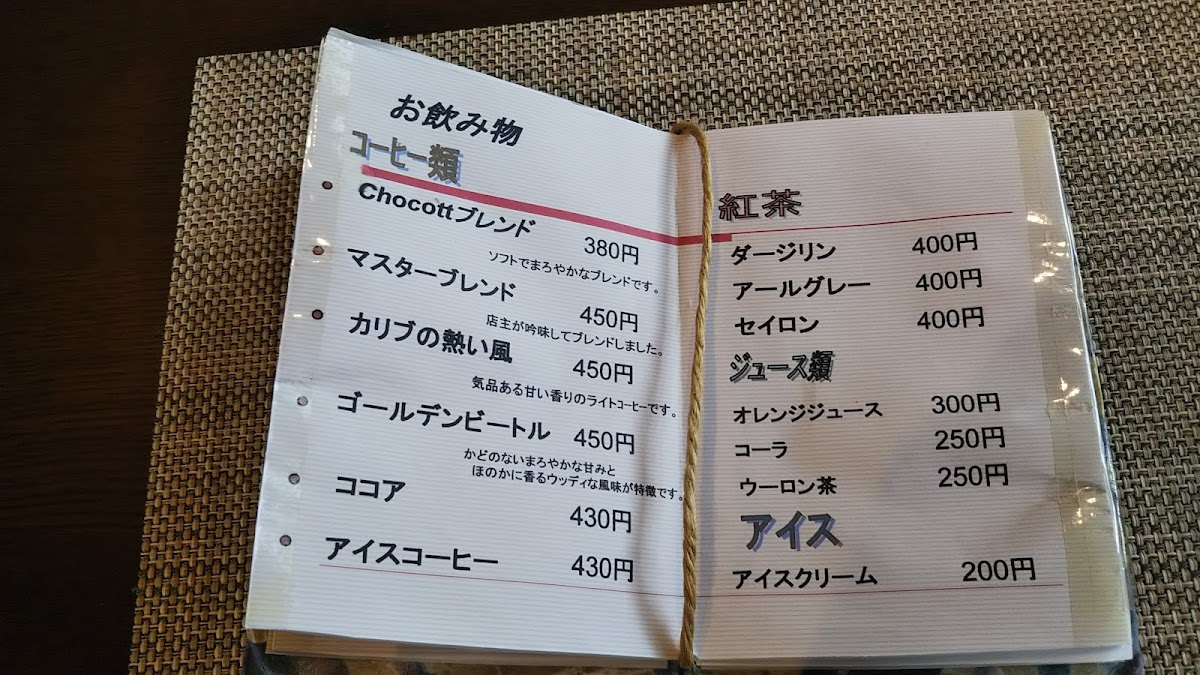 お飲み物
コーヒー類
Chocottブレンド
380円
ソフトでまろやかなブレンドです。
マスターブレンド
450円
店主が吟味してブレンドしました。
カリブの熱い風
450円
気品ある甘い香りのライトコーヒーです。
ゴールデンビートル 450円
かどのないまろやかな甘みと
ほのかに香るウッディな風味が特徴です。
ココア
430円
アイスコーヒー 430円
紅茶
ダージリン 400円
アールグレー 400円
セイロン 400円
ジュース類
オレンジジュース 300円
コーラ 250円
ウーロン茶 250円
アイス
アイスクリーム 200円